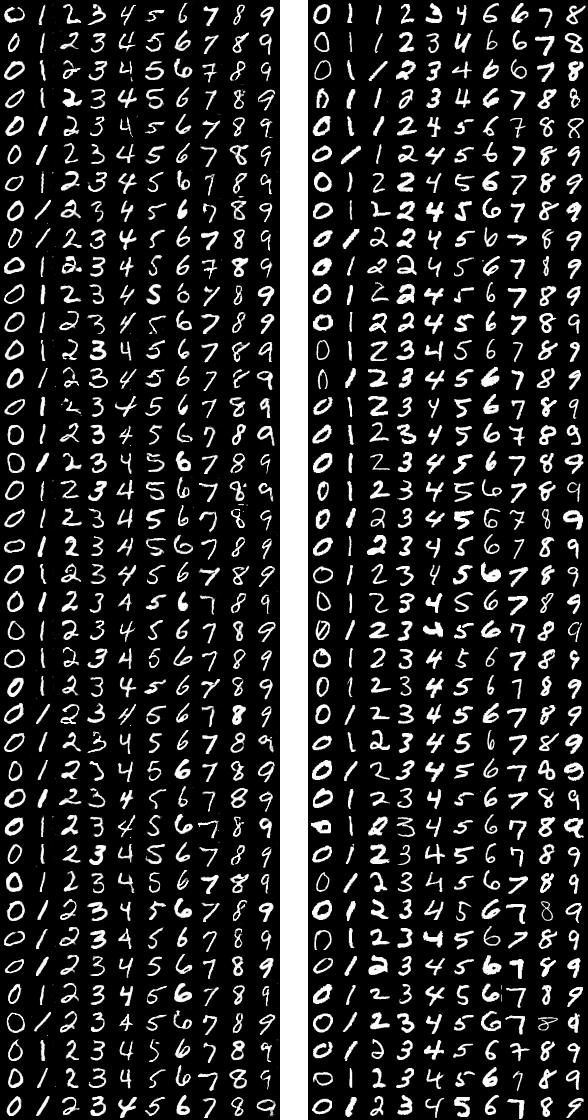 0 1 2 3 4 5 6 7 8 9
0 1 2 3 4 5 6 7 8 9
0 1 2 3 4 5 6 7 8 9
0 1 2 3 4 5 6 7 8 9
0 1 2 3 4 5 6 7 8 9
0 1 2 3 4 5 6 7 8 9
0 1 2 3 4 5 6 7 8 9
0 1 2 3 4 5 6 7 8 9
0 1 2 3 4 5 6 7 8 9
0 1 2 3 4 5 6 7 8 9
0 1 2 3 4 5 6 7 8 9
0 1 2 3 4 5 6 7 8 9
0 1 2 3 4 5 6 7 8 9
0 1 2 3 4 5 6 7 8 9
0 1 2 3 4 5 6 7 8 9
0 1 2 3 4 5 6 7 8 9
0 1 2 3 4 5 6 7 8 9
0 1 2 3 4 5 6 7 8 9
0 1 2 3 4 5 6 7 8 9
0 1 2 3 4 5 6 7 8 9
0 1 2 3 4 5 6 7 8 9
0 1 2 3 4 5 6 7 8 9
0 1 2 3 4 5 6 7 8 9
0 1 2 3 4 5 6 7 8 9
0 1 2 3 4 5 6 7 8 9
0 1 2 3 4 5 6 7 8 9
0 1 2 3 4 5 6 7 8 9
0 1 2 3 4 5 6 7 8 9
0 1 2 3 4 5 6 7 8 9
0 1 2 3 4 5 6 7 8 9
0 1 2 3 4 5 6 7 8 9
0 1 2 3 4 5 6 7 8 9
0 1 2 3 4 5 6 7 8 9
0 1 2 3 4 5 6 7 8 9
0 1 2 3 4 5 6 7 8 9
0 1 2 3 4 5 6 7 8 9
0 1 2 3 4 5 6 7 8 9
0 1 2 3 4 5 6 7 8 9
0 1 2 3 4 5 6 7 8 9
0 1 2 3 4 5 6 7 8 9
0 1 1 2 3 4 6 6 7 8
0 1 1 2 3 4 6 6 7 8
0 1 1 2 3 4 6 6 7 8
0 1 1 2 3 4 6 7 8 8
0 1 1 2 4 5 6 7 8 8
0 1 1 2 4 5 6 7 8 9
0 1 2 2 4 5 6 7 8 9
0 1 2 2 4 5 6 7 8 9
0 1 2 2 4 5 6 7 8 9
0 1 2 2 4 5 6 7 8 9
0 1 2 2 4 5 6 7 8 9
0 1 2 2 4 5 6 7 8 9
0 1 2 3 4 5 6 7 8 9
0 1 2 3 4 5 6 7 8 9
0 1 2 3 4 5 6 7 8 9
0 1 2 3 4 5 6 7 8 9
0 1 2 3 4 5 6 7 8 9
0 1 2 3 4 5 6 7 8 9
0 1 2 3 4 5 6 7 8 9
0 1 2 3 4 5 6 7 8 9
0 1 2 3 4 5 6 7 8 9
0 1 2 3 4 5 6 7 8 9
0 1 2 3 4 5 6 7 8 9
0 1 2 3 4 5 6 7 8 9
0 1 2 3 4 5 6 7 8 9
0 1 2 3 4 5 6 7 8 9
0 1 2 3 4 5 6 7 8 9
0 1 2 3 4 5 6 7 8 9
0 1 2 3 4 5 6 7 8 9
0 1 2 3 4 5 6 7 8 9
0 1 2 3 4 5 6 7 8 9
0 1 2 3 4 5 6 7 8 9
0 1 2 3 4 5 6 7 8 9
0 1 2 3 4 5 6 7 8 9
0 1 2 3 4 5 6 7 8 9
0 1 2 3 4 5 6 7 8 9
0 1 2 3 4 5 6 7 8 9
0 1 2 3 4 5 6 7 8 9
0 1 2 3 4 5 6 7 8 9
0 1 2 3 4 5 6 7 8 9